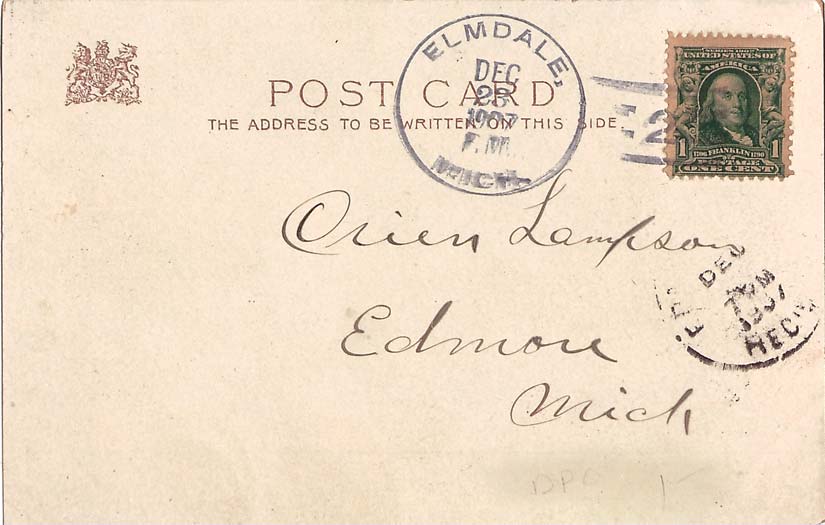 POST CARD
THE ADDRESS TO BE WRITTEN ON THIS SIDE.
ELMDALE,
DEC
23
1907
P.M.
MICH.
2
SERIES 1902
UNITED STATES OF
AMERICA
1706 FRANKLIN 1790
1 POSTAGE 1
ONE CENT
Orien Lampson
Edmore
Mich
DEC
1907
REC'D
DPO